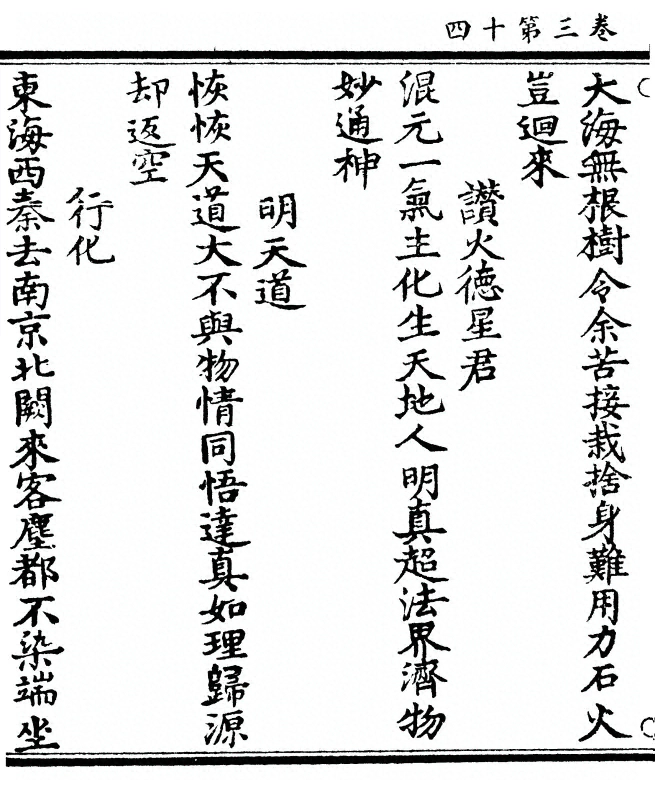 卷三第十四
大海無根樹令余苦接栽捨身難用力石火
豈迴來
讚火德星君
混元一氣主化生天地人明真超法界濟物
妙通神
明天道
恢恢天道大不與物情同悟達真如理歸源
却返空
行化
東海西秦去南京北闕來客塵都不染端坐